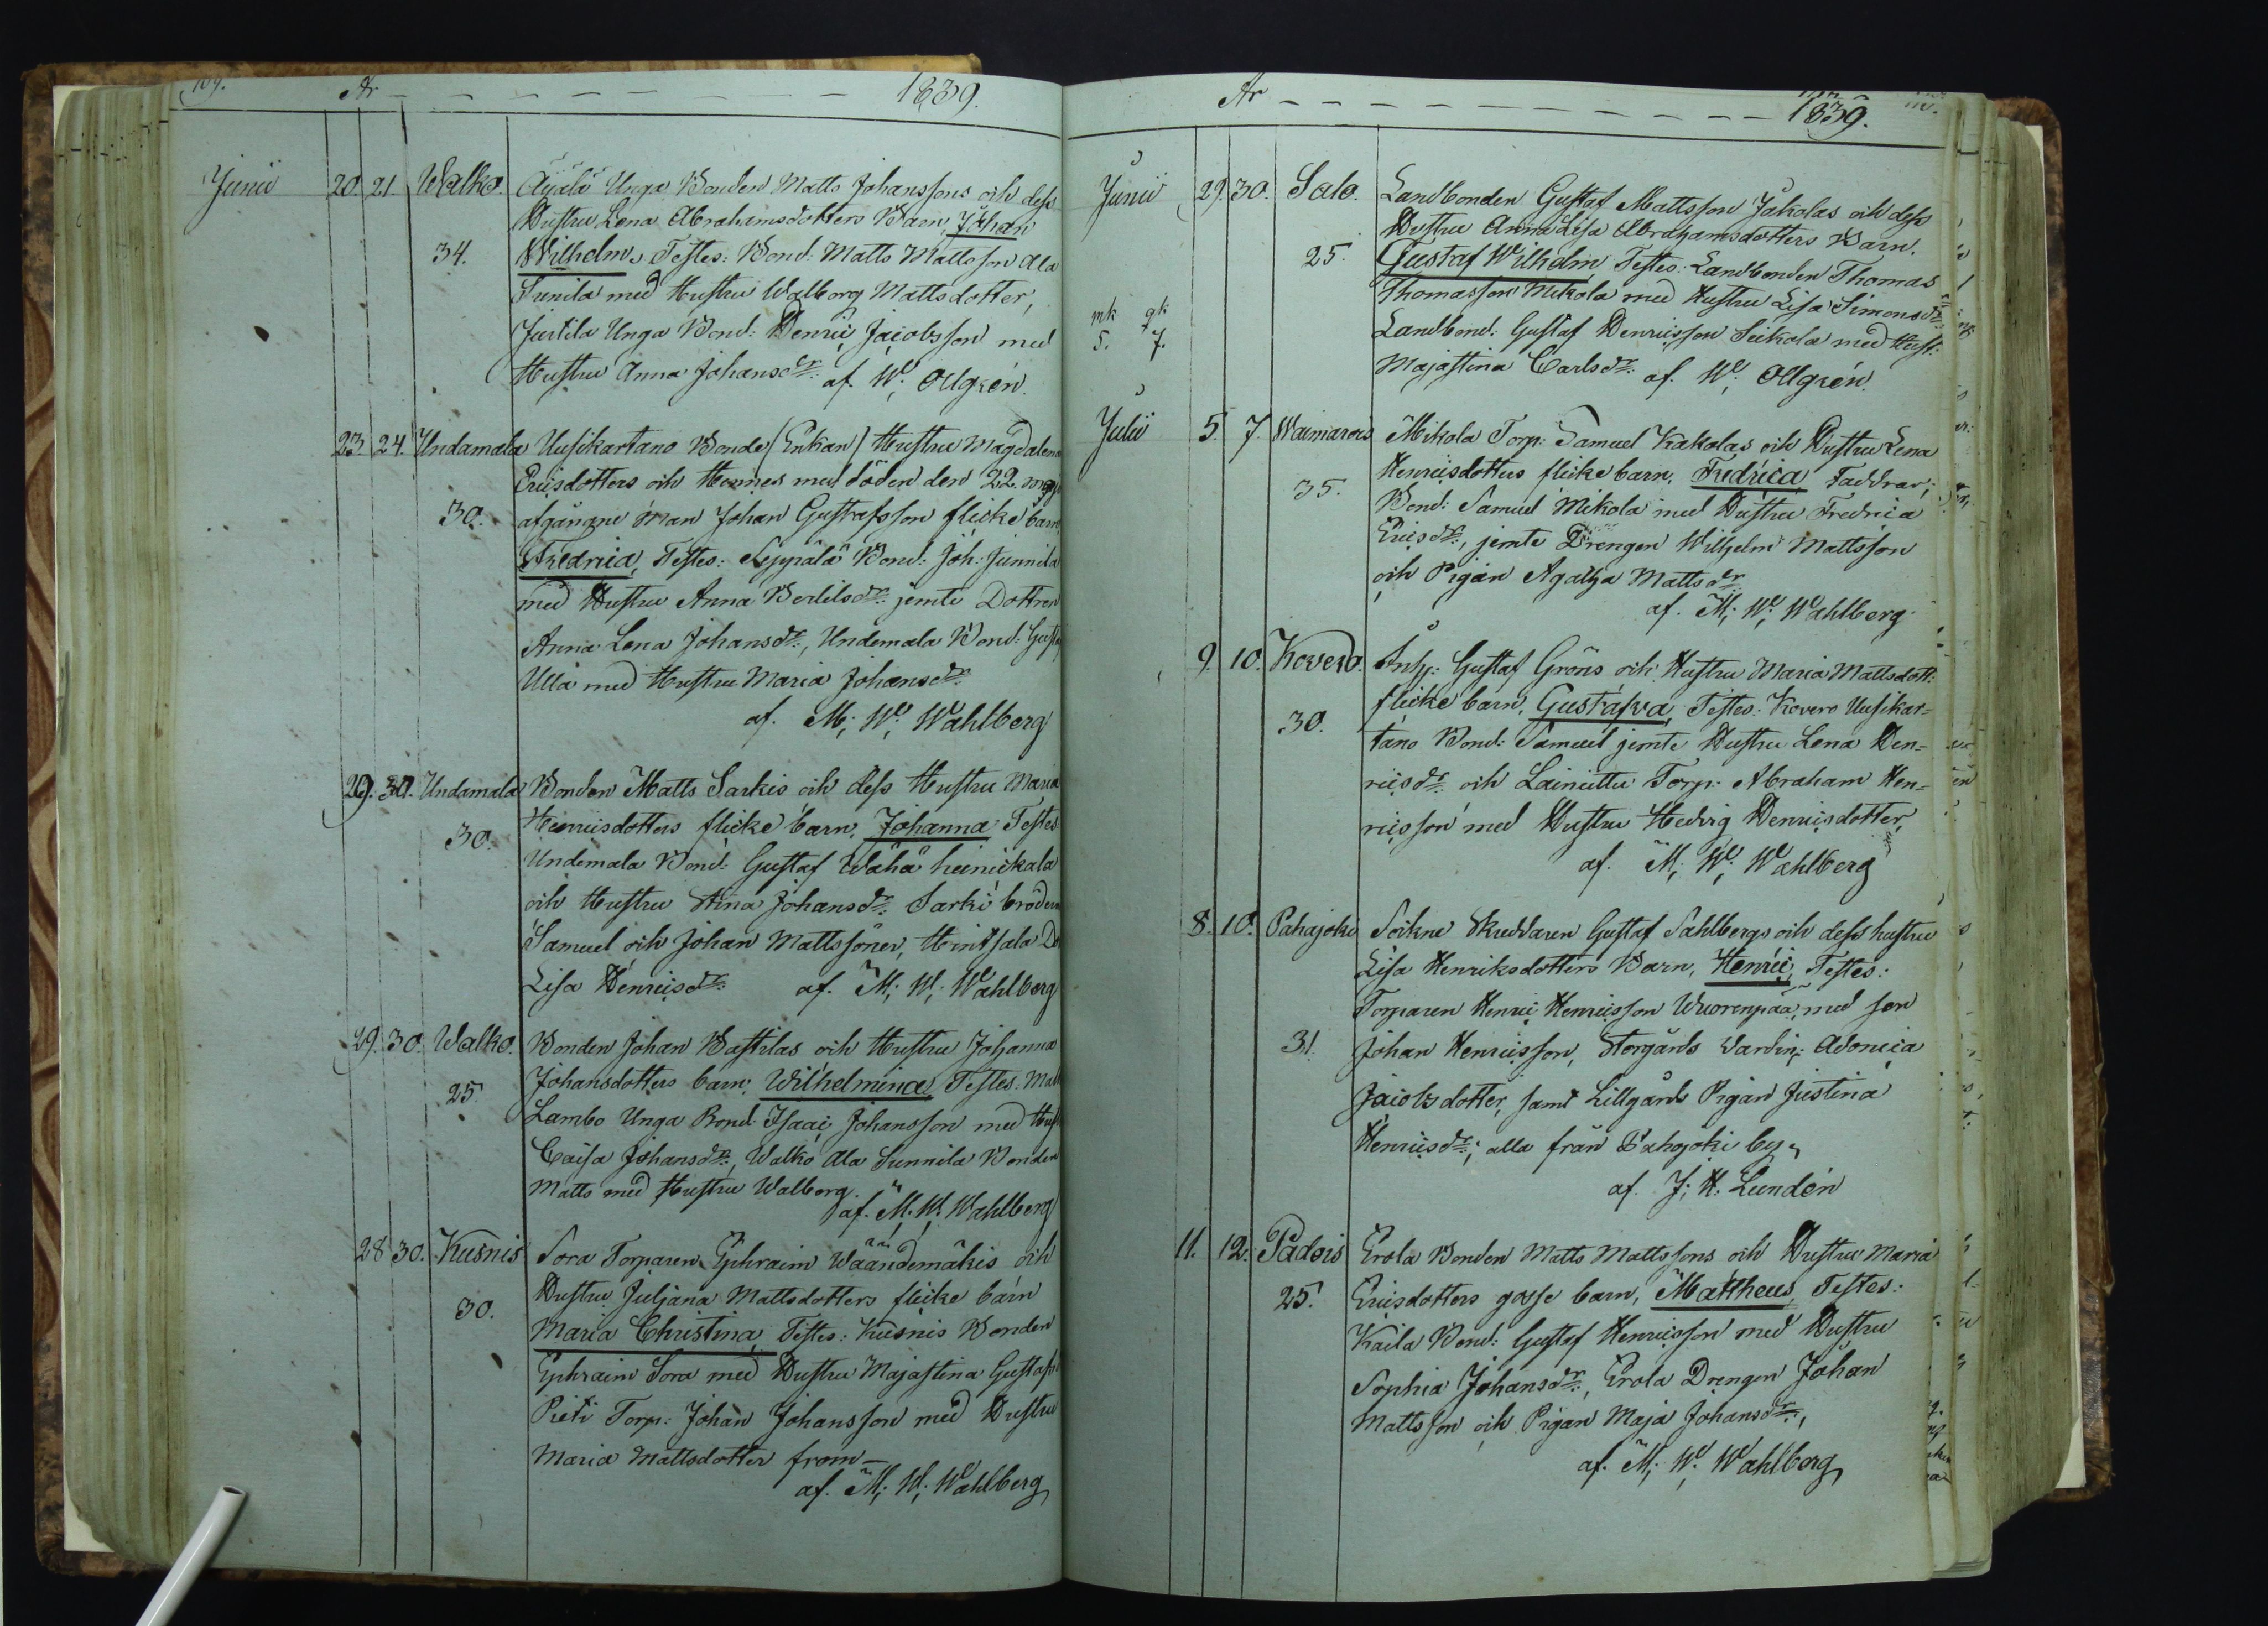 109.
År 1839.
Junii 20. 21. Walko. Äijälä Unga Bonden Matts Johanssons och dess
Hustru Lena Abrahamsdotters Barn, Johan
34. Wilhelm, Testes: Bond: Matts Mattsson Ala
Sunila med Hustru Walborg Mattsdotter,
Jurtila Unga Bond: Henric Jacobsson med
Hustru Anna Johansdr: af W. Ollgrén.
23. 24. Undamala Uusikartano Bonde (Enkan) Hustru Magdalena
Ericsdotters och Hennes med döden den 22.
30. afgångne man Johan Gustafsson flicke barn
Fredrica, Testes: Seppälä Bond: Joh: Junnila
med Hustru Anna Bertilsdr: jemte Dottren
Anna Lena Johansdr:, Undemala Bond: Gustaf
Ulla med Hustru Maria Johansdr:
af. M. W. Wahlberg
29. 30. Undamala Bonden Matts Sarkis och dess Hustru Maria
Henricsdotters flicke barn, Johanna Testes
30. Undemala Bond: Gustaf Wähä heinickala
och Hustru Stina Johansdr: Sarki bröderna
Samuel och Johan Mattssöner, Hintsala
Lisa Henricsdr: af. M. W. Wahlberg
29. 30. Walko. Bonden Johan Bastilas och Hustru Johanna
25. Johansdotters barn, Wilhelmina, Testes:
Lambo Unga Bond: Isaac Johansson med
Caisa Johansdr:, Walko Ala Sunnila Bonden
Matts med Hustru Walborg.
af. M. W. Wahlberg
28 30. Kusnis Sora Torparen Ephraim Wäändemäkis och
Hustru Juljana Mattsdotters flicke barn
30. Maria Christina, Testes: Kusnis Bonden
Ephraim Sora med Hustru Majastina
Pieti Torp: Johan Johansson med Hustru
Maria Mattsdotter from
af. M. W. Wahlberg
År 1839.
Junii 29. 30. Salo. Landbonden Gustaf Mattsson Jakolas och dess
Hustru Anna Lisa Abrahamsdotters Barn.
25. Gustaf Wilhelm Testes: Landbonden Thomas
Thomasson Mikola med Hustru Lisa Simonsdr:
mk gk
5. 7.
Landbond: Gustaf Henricsson Seikola med Hust:
Majastina Carlsdr: af W. Ollgrén.
Julii 5. 7. Waimarois Mikola Torp: Samuel Kakolas och Hustru Lena
Henricsdotters flicke barn, Fredrica Faddrar;
35. Bond: Samuel Mikola med Hustru Fredrica
Ericsdr:, jemte Drengen Wilhelm Mattsson
och Pigan Agatha Mattsdr:
af. M. W. Wahlberg
9. 10. Kovero. Gustaf Gröns och Hustru Maria Mattsdott:
flicke barn, Gustafva, Testes: Kovero Uusikar=
30. tano Bond: Samuel jemte Hustru Lena Hen=
ricsdr: och Lainittu Torp: Abraham Hen=
ricsson med Hustru Hedvig Henricsdotter,
af. M. W. Wahlberg
8. 10. Pahajoki Sockne Skreddaren Gustaf Sahlbergs och dess hustru
Lisa Henriksdotters Barn, Henric, Testes:
Torparen Henric Henricsson Wuorenpää, med son
31. Johan Henricsson, Storgårds Värdin: Adonica
Jacobsdotter, samt Lillgårds Pigan Justina
Henricsdr:; alla från Pahojoki by,
af. J. H. Lundén
11. 12. Padois Erola Bonden Matts Mattssons och Hustru Maria
25. Ericsdotters gosse barn, Mattheus, Testes:
Kaila Bond: Gustaf Henricsson med Hustru
Sophia Johansdr:, Erola Drengen Johan
Mattsson och Pigan Maja Johansdr:,
af. M. W. Wahlberg